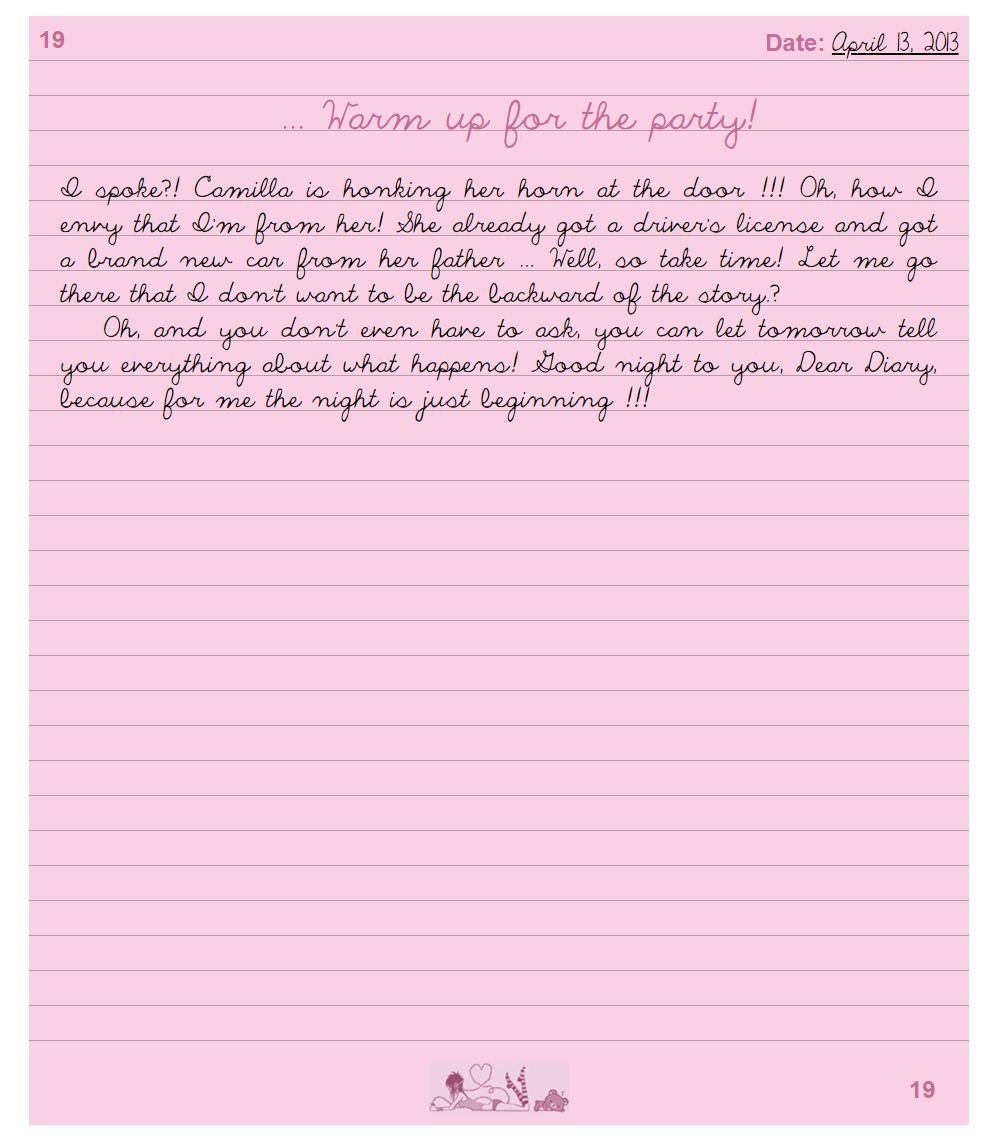 19
Date: April 13, 2013
... Warm up for the party!
I spoke?! Camilla is honking her horn at the door !!! Oh, how I
envy that I'm from her! She already got a driver's license and got
a brand new car from her father ... Well, so take time! Let me go
there that I don't want to be the backward of the story.?
Oh, and you don't even have to ask, you can let tomorrow tell
you everything about what happens! Good night to you, Dear Diary,
because for me the night is just beginning !!!
19